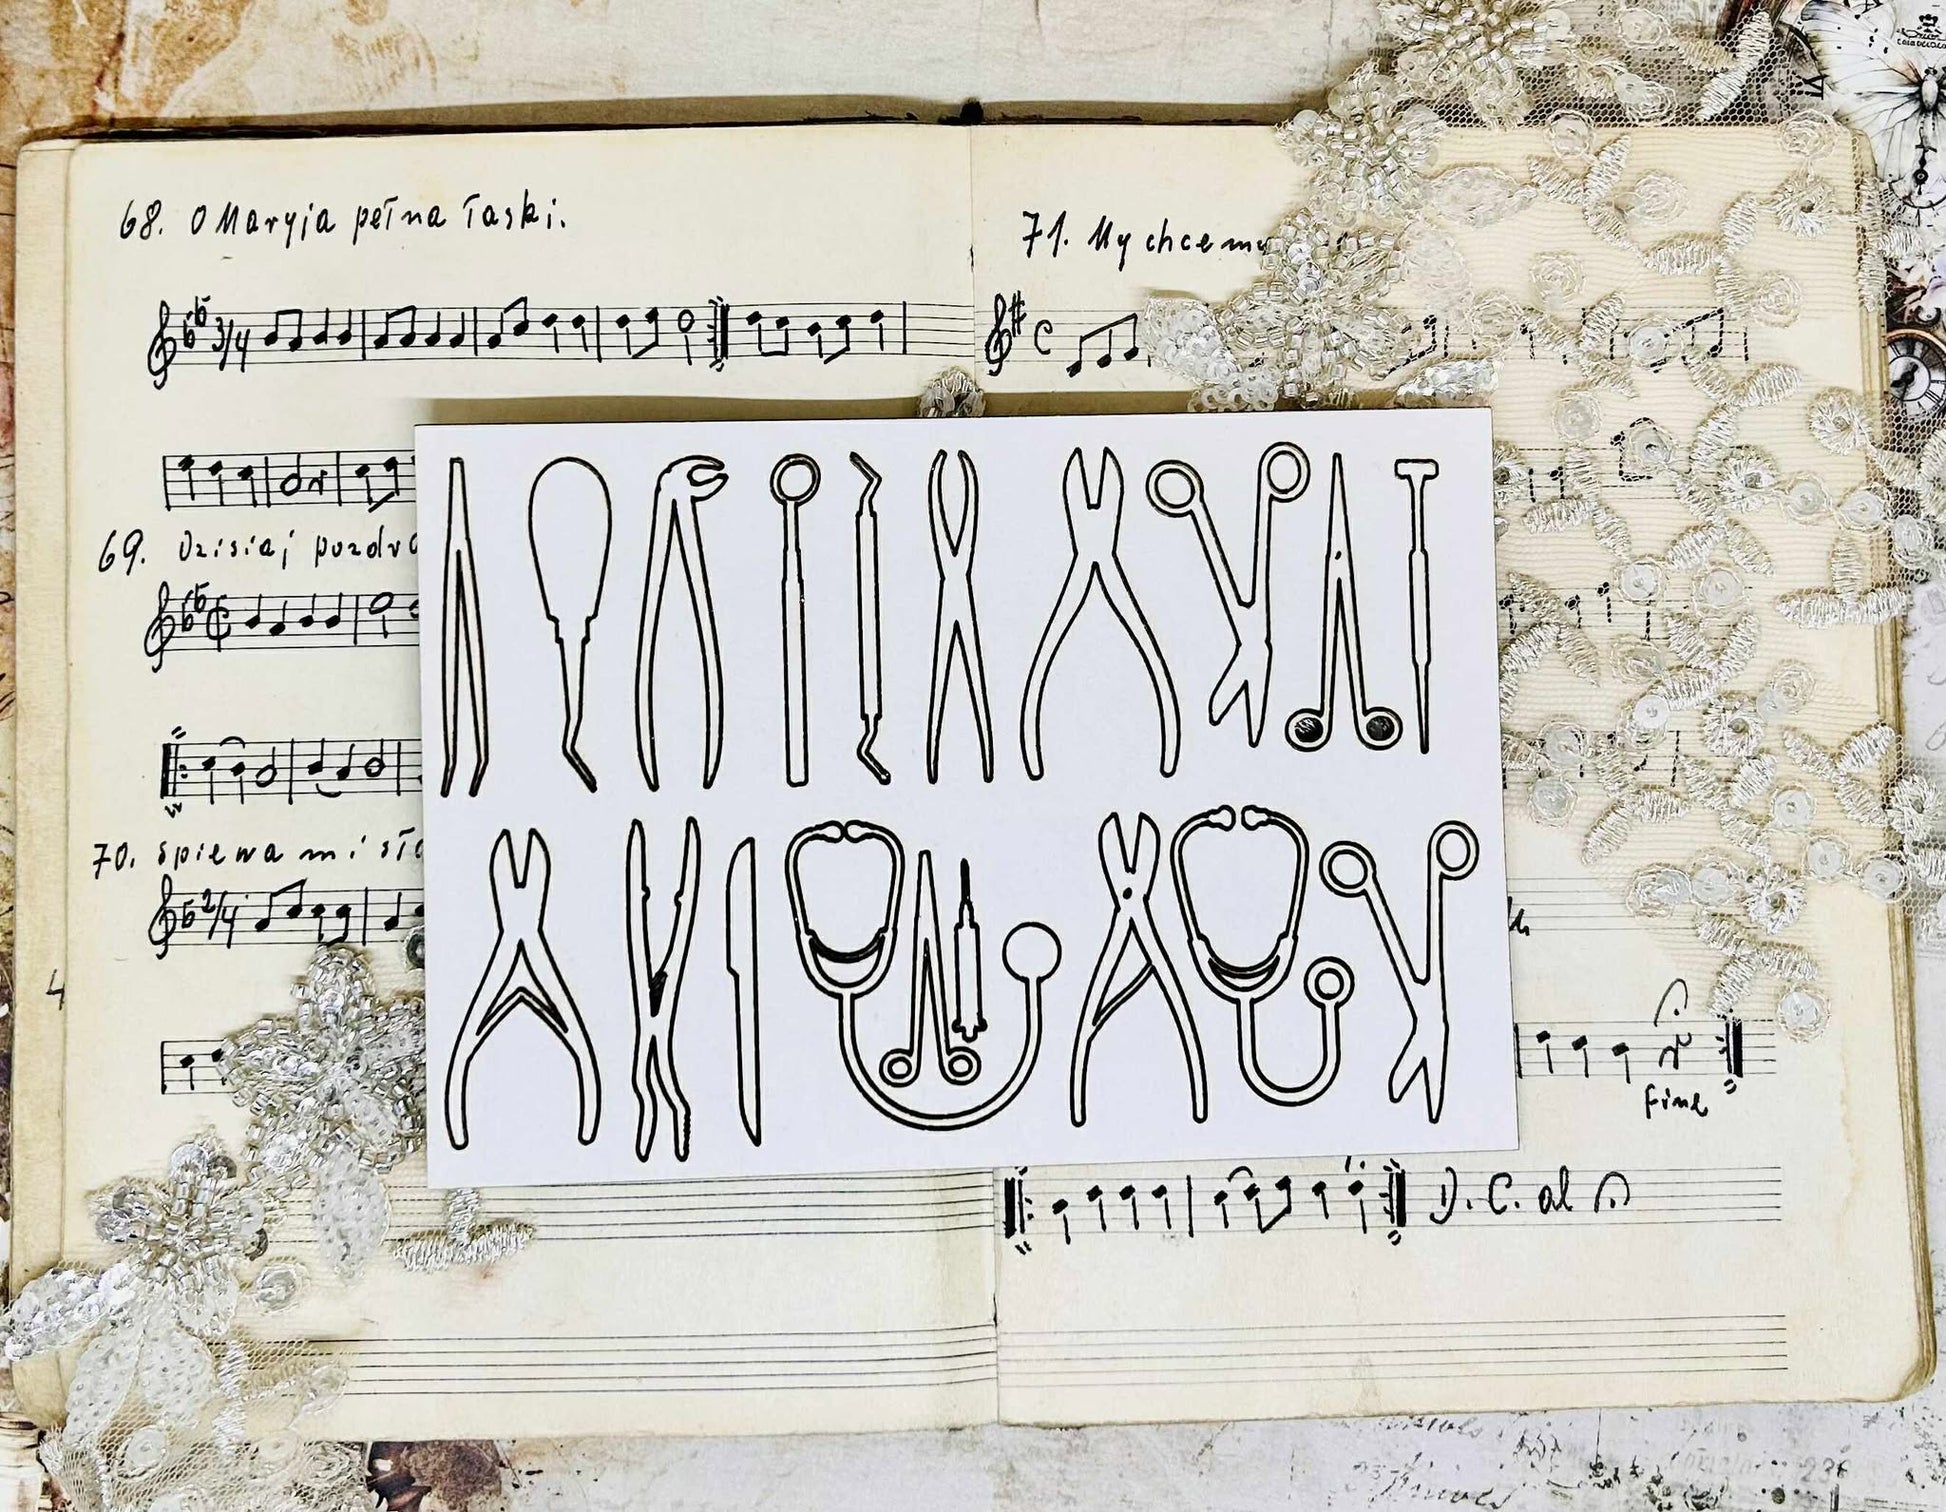 68. O Maryja pełna łaski.
3/4
69. Dzisiaj
70. Śpiewa mi
2/4
4
71. My chcemy
C
Fine
D. C. al